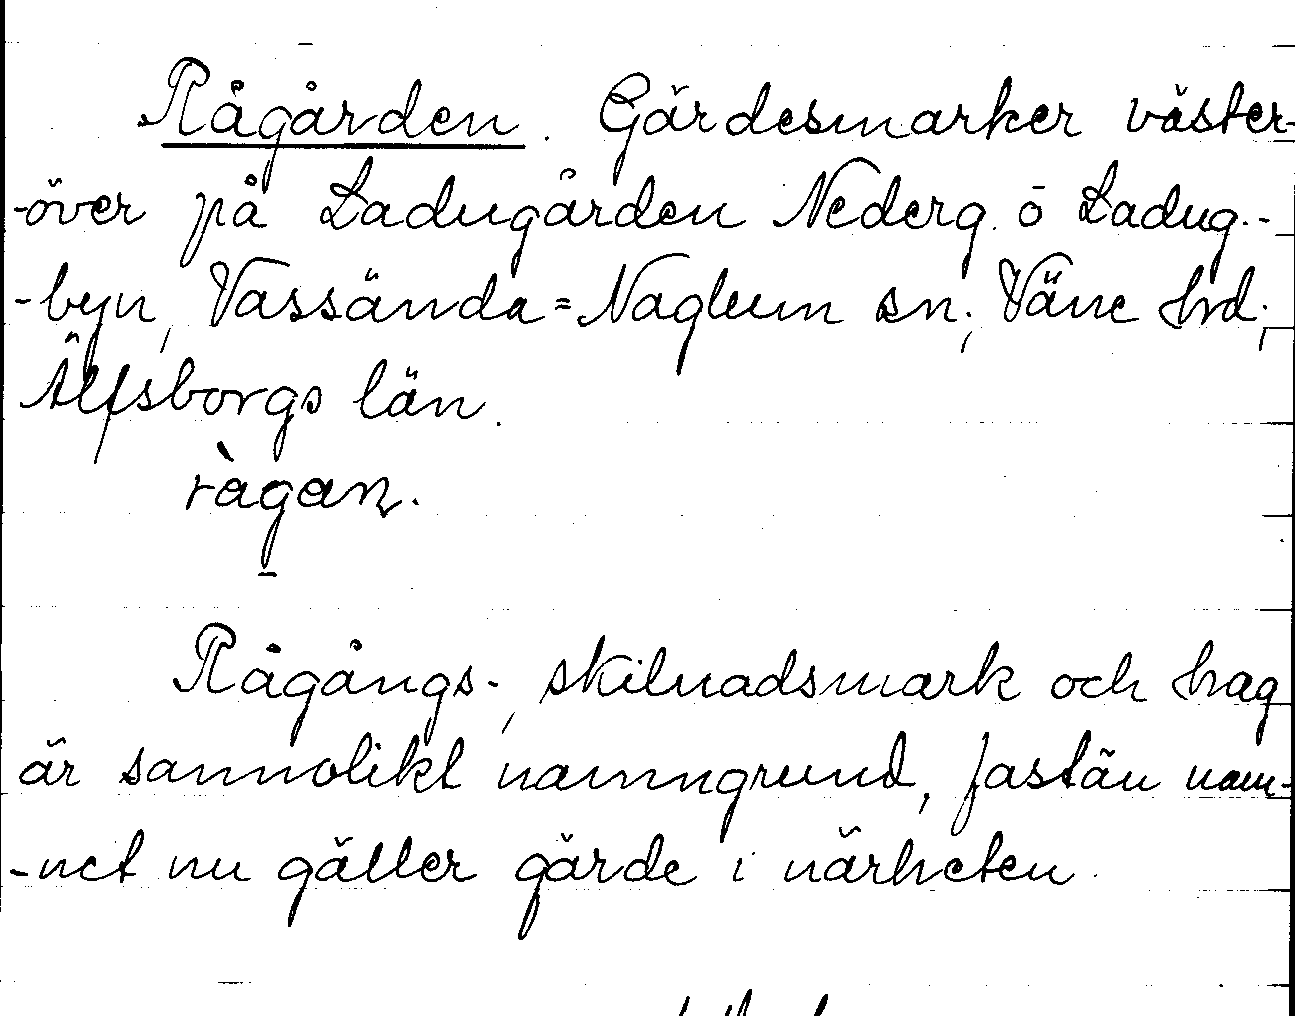 Rågården. Gärdesmarker väster-
-över på Ladugården Nederg. o Ladug.-
-byn, Vassända=Naglum sn; Väne hrd;
Älfsborgs län.
rågan.
Rågångs-, skilnadsmark och hag
är sannolikt namngrund, fastän nam-
-net nu gäller gärde i närheten.